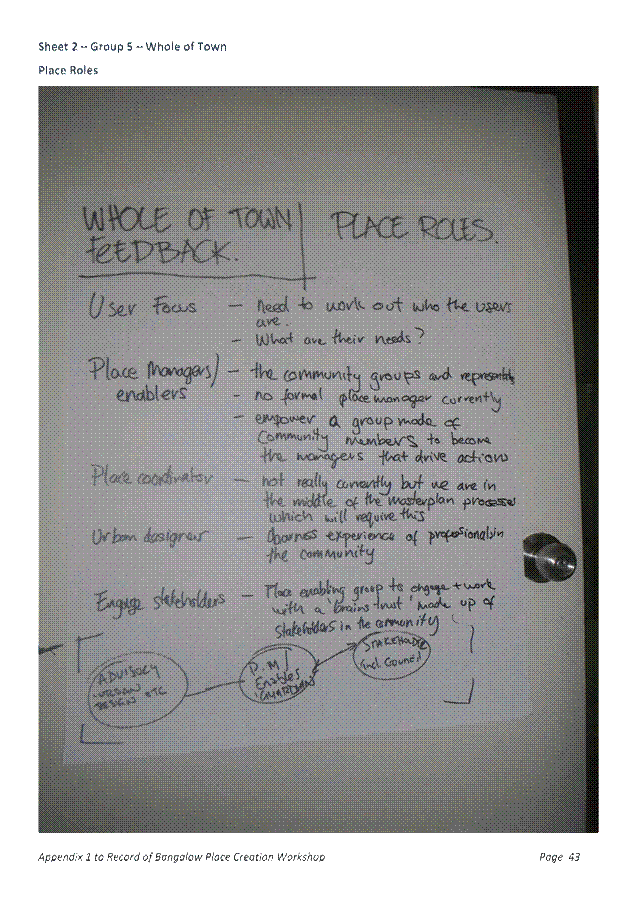 Sheet 2 – Group 5 – Whole of Town
Place Roles
WHOLE OF TOWN
FEEDBACK.
PLACE ROLES.
User Focus – Need to work out who the users
are.
– What are their needs?
Place Managers/ – the community groups and
enablers – no formal place manager currently
– empower a group made of
community members to become
the managers that drive actions
Place coordinator – not really currently but we are in
the middle of the masterplan process
which will require this
Urban designer – experience of professionals in
the community
Engage stakeholders – Place enabling group to engage + work
with a 'brains trust' made up of
stakeholders in the community
ADVISORY
URBAN ETC
DESIGN
P.M/
Enables
'GUARDIAN'
STAKEHOLDE
incl. Council
Appendix 1 to Record of Bangalow Place Creation Workshop
Page 43